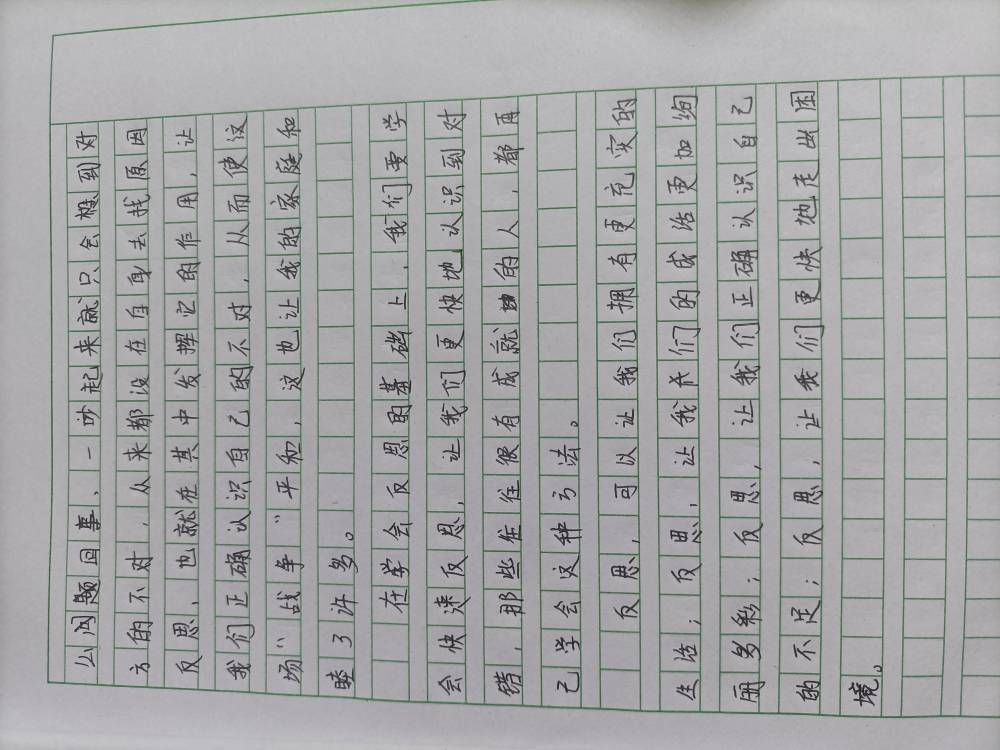 么问题回事,一吵起来就只会想到对
方的不对,从来都没在自身去找原因
反思,也就在其中发挥它的作用,让
我们正确认识自己的不对,从而使这
场“战争”平和,这也让我的家庭和
睦了许多。
在学会反思的基础上,我们要学
会快速反思,让我们更快地认识到对
错,那些往往很有成就的人,都再
己学会这种方法。
反思,可以让我们拥有更充实的
生活;反思,让我们的成活更加绚
丽多彩;反思,让我们正确认识自己
的不足;反思,让我们更快地走出困
境。